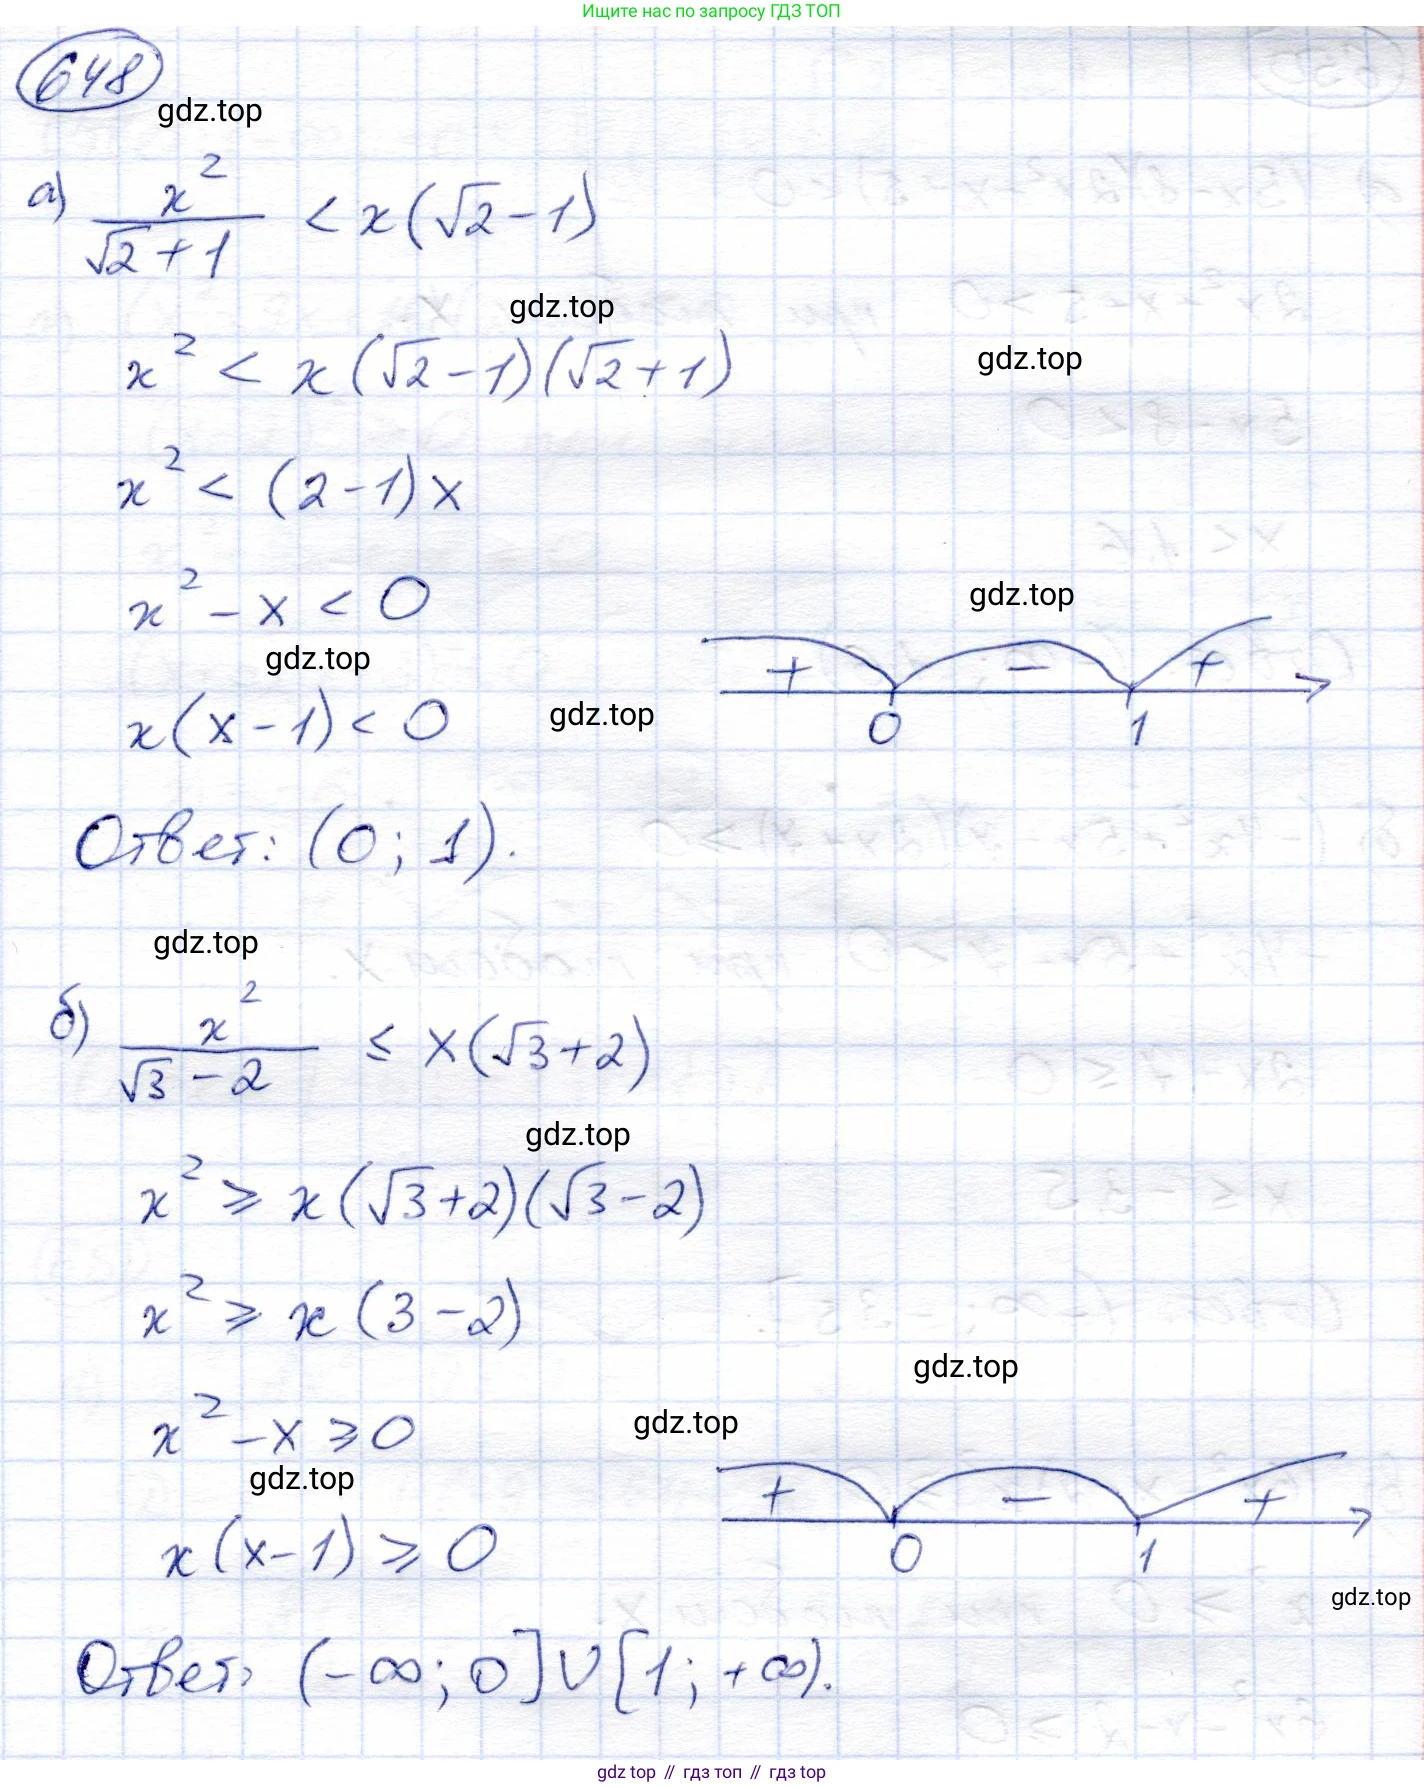 Ищите нас по запросу ГДЗ ТОП
648
gdz.top
а) x²/(√2 + 1) < x(√2 - 1)
gdz.top
x² < x(√2 - 1)(√2 + 1)
gdz.top
x² < (2 - 1)x
x² - x < 0
gdz.top
gdz.top
x(x - 1) < 0
gdz.top
+ - +
0 1
Ответ: (0; 1).
gdz.top
б) x²/(√3 - 2) ≤ x(√3 + 2)
gdz.top
x² ⩾ x(√3 + 2)(√3 - 2)
x² ⩾ x(3 - 2)
gdz.top
x² - x ⩾ 0
gdz.top
gdz.top
x(x - 1) ⩾ 0
+ - +
0 1
gdz.top
Ответ: (-∞; 0] ∪ [1; +∞).
gdz top // гдз топ // гдз top